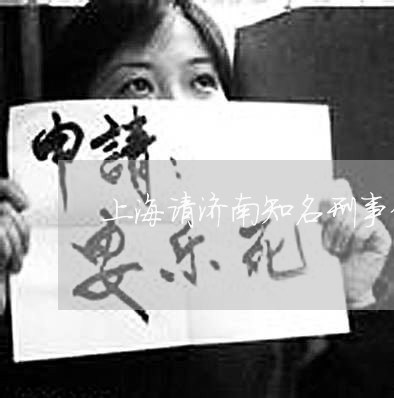 申請：
上海请济南知名刑事
安乐死